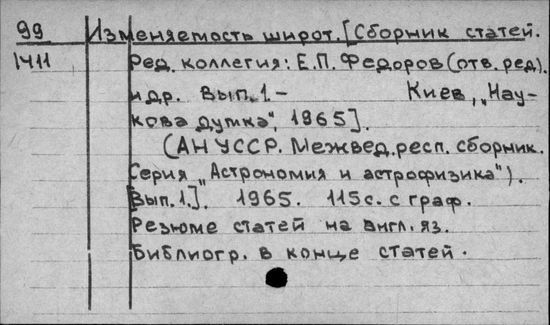 99 Изменяемость широт. [Сборник статей.
1411 Ред. коллегия: Е.П. Федоров (отв. ред).
и др. Вып. 1.- Киев, „Нау-
кова думка", 1965].
(АН УССР. Межвед. респ. сборник.
Серия „Астрономия и астрофизика").
[Вып. 1.]. 1965. 115 с. с граф.
Резюме статей на англ. яз.
Библиогр. в конце статей.